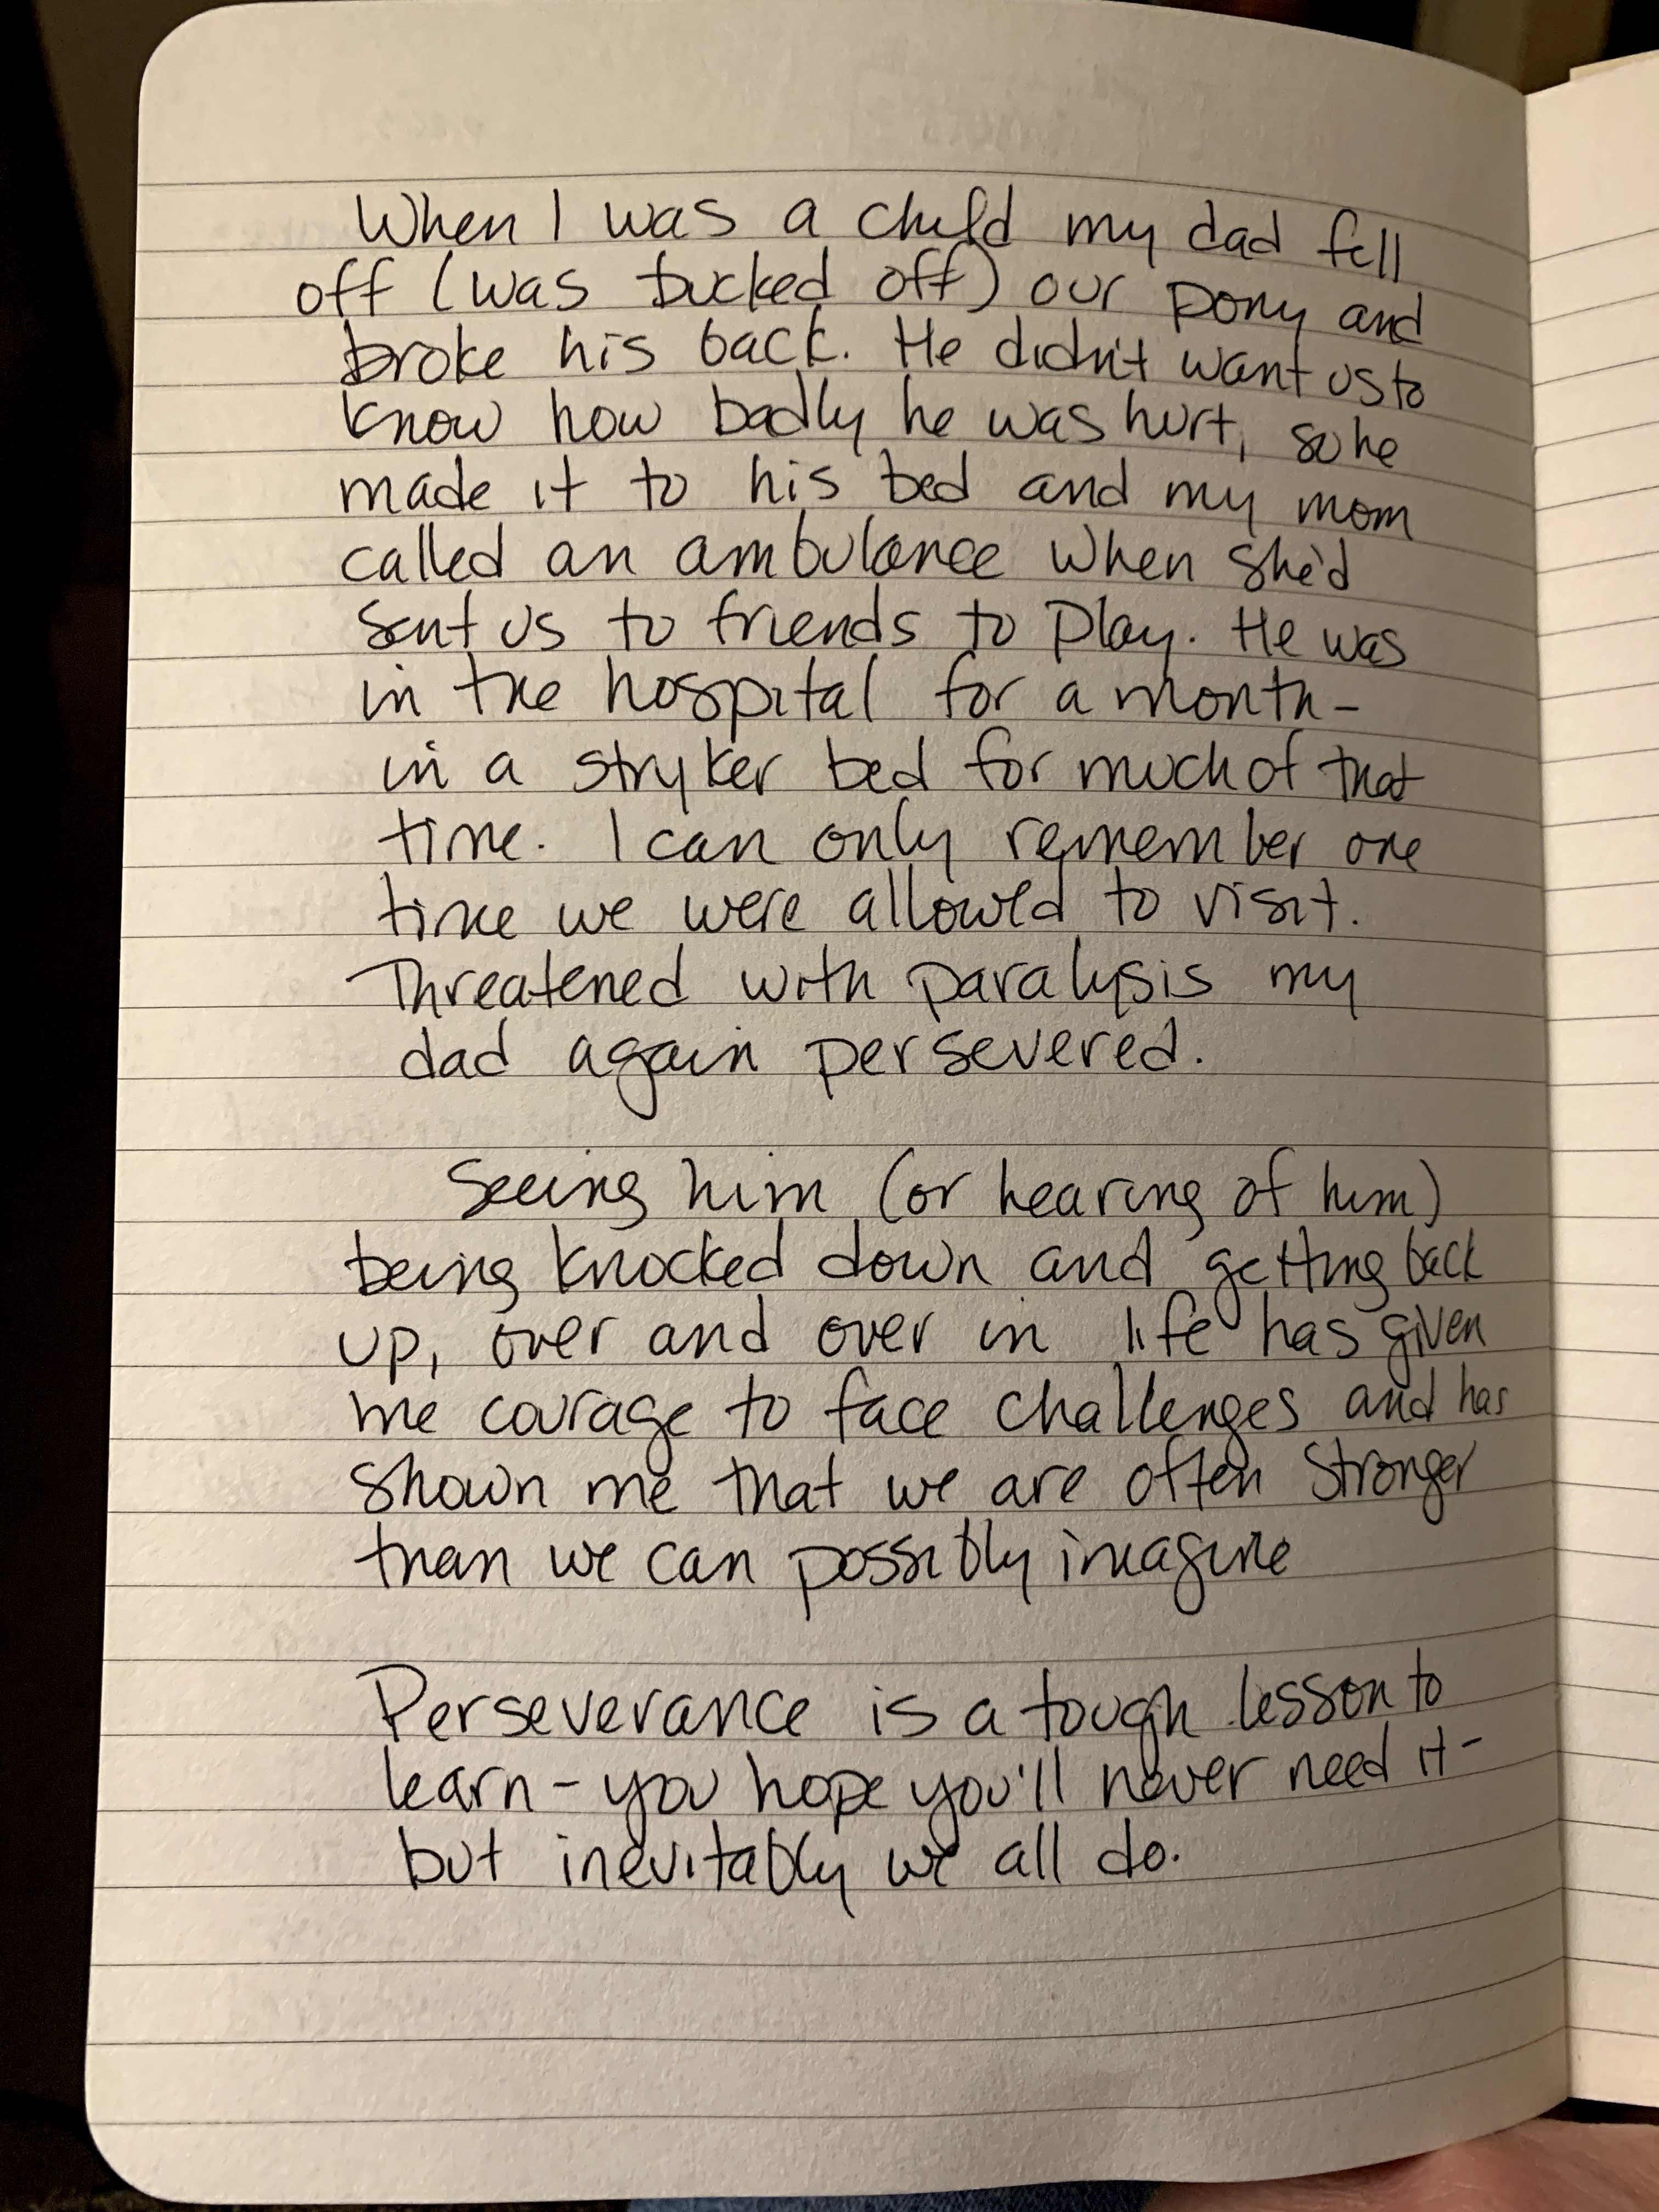 When I was a child my dad fell
off (was bucked off) our pony and
broke his back. He didn't want us to
know how badly he was hurt, so he
made it to his bed and my mom
called an ambulance when she'd
sent us to friends to play. He was
in the hospital for a month-
in a stryker bed for much of that
time. I can only remember one
time we were allowed to visit.
Threatened with paralysis my
dad again persevered.
Seeing him (or hearing of him)
being knocked down and getting back
up, over and over in life has given
me courage to face challenges and has
shown me that we are often stronger
than we can possibly imagine
Perseverance is a tough lesson to
learn - you hope you'll never need it -
but inevitably we all do.